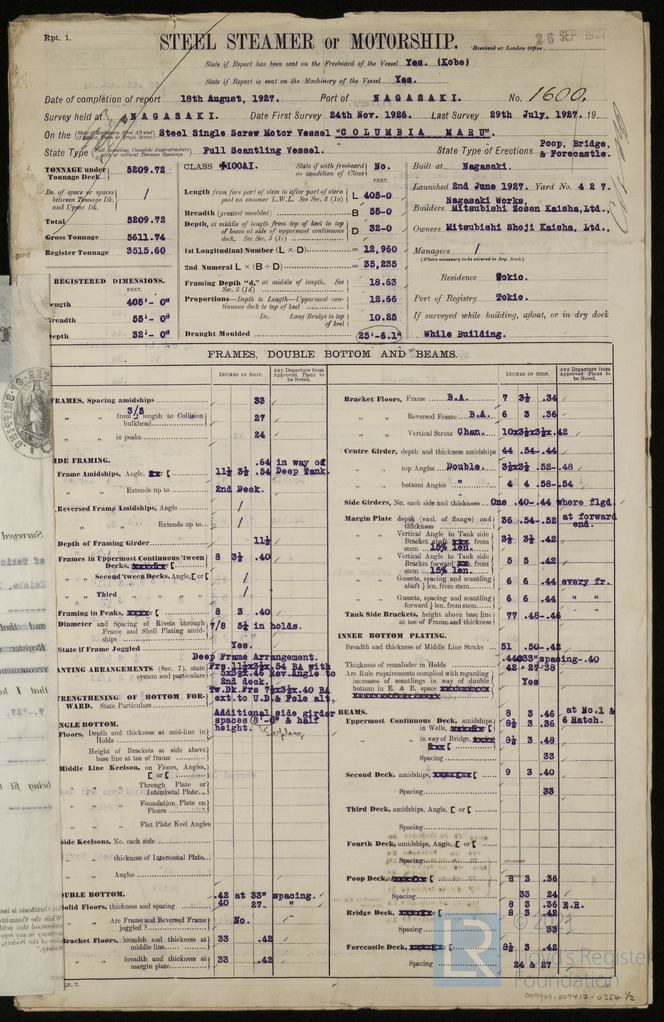 Rpt. 1.
26 SEP 1927
STEEL STEAMER or MOTORSHIP.
Received at London Office
State if Report has been sent on the Freeboard of the Vessel Yes. (Kobe)
State if Report is sent on the Machinery of the Vessel Yes.
Date of completion of report 18th August, 1927. Port of NAGASAKI. No. 1600.
Survey held at NAGASAKI. Date First Survey 24th Nov. 1926. Last Survey 29th July, 1927. 19
On the Steel Single Screw Motor Vessel "COLUMBIA MARU".
State Type Full Scantling Vessel. State Type of Erections Poop, Bridge, & Forecastle.
TONNAGE under Tonnage Deck 5209.72
Do. of space or spaces between Tonnage Dk. and Upper Dk. /
Total 5209.72
Gross Tonnage 5611.74
Register Tonnage 3515.60
REGISTERED DIMENSIONS.
FEET.
ength 405'- 0"
readth 55'- 0"
epth 32'- 0"
CLASS ✠100A1. State if with freeboard as condition of Class No.
FEET.
Length from fore part of stem to after part of stern post on summer L.W.L. See Sec. 3 (1a) L 405-0
Breadth (greatest moulded) B 55-0
Depth, at middle of length from top of keel to top of beam at side of uppermost continuous deck. See Sec. 3 (1c) D 32-0
1st Longitudinal Number (L × D) = 12,960
2nd Numeral L × (B + D) = 35,235
Framing Depth "d," at middle of length. See Sec. 3 (1d) 18.63
Proportions—Depth to Length—Uppermost continuous deck to top of keel 12.66
Do. Long Bridge to top of keel 10.25
Draught Moulded 25'-6.1"
Built at Nagasaki.
Launched 2nd June 1927. Yard No. 427.
Builders Nagasaki Works, Mitsubishi Zosen Kaisha, Ltd.,
Owners Mitsubishi Shoji Kaisha, Ltd.,
Managers /
(Where necessary to be entered in Reg. Book.)
Residence Tokio.
Port of Registry Tokio.
If surveyed while building, afloat, or in dry dock
While Building.
FRAMES, DOUBLE BOTTOM AND BEAMS.
INCHES IN SHIP. Any Departure from Approved Plans to be Noted.
RAMES, Spacing amidships 33
" " from 3/5 length to Collision bulkhead 27
" " in peaks 24
IDE FRAMING.
Frame Amidships, Angle, [ 11½ 3½ .54 .64 in way of Deep Tank.
" " Extends up to 2nd Deck.
Reversed Frame Amidships, Angle /
" " Extends up to /
Depth of Framing Girder 11½
Frames in Uppermost Continuous 'tween Decks, [ 8 3½ .40
" Second 'tween Decks, Angle, [ or [ /
" Third " " /
Framing in Peaks, [ 8 3 .40
Diameter and Spacing of Rivets through Frame and Shell Plating amidships 7/8 5¼ in holds.
State if Frame Joggled Yes.
ANTING ARRANGEMENTS (Sec. 7), state system and particulars Deep Frame Arrangement. Frs 11½x3½x.54 BA with 5x3½x.46 Rev.Angle to 2nd deck. Tw.Dk.Frs 7x3½x.40 BA ext.to U.D.& Pole alt.
TRENGTHENING OF BOTTOM FORWARD. State Particulars Additional side girder spaces 8'-0" & half height.
NGLE BOTTOM.
Floors, Depth and thickness at mid-line in Holds
Height of Brackets at side above base line at toe of frame
Middle Line Keelson, on Floors, Angles, [ or [
" " Through Plate or Intercostal Plate
" " Foundation Plate on Floors
" " Flat Plate Keel Angles
Side Keelsons, No. each side
" " thickness of Intercostal Plate
" " Angles
OUBLE BOTTOM.
olid Floors, thickness and spacing .42 at 33" spacing. 40 27. "
" " Are Frame and Reversed Frame joggled? No.
racket Floors, breadth and thickness at middle line 33 .42
" " breadth and thickness at margin plate 33 .42
INCHES IN SHIP. Any Departure from Approved Plans to be Noted.
Bracket Floors, Frame B.A. 7 3½ .34
" " Reversed Frame B.A. 6 3 .36
" " Vertical Struts Chan. 10x3½x3½x.42
Centre Girder, depth and thickness amidships 44 .54-.44
" " top Angles Double. 3½x3½ .52-.48
" " bottom Angles " 4 4 .58-.54
Side Girders, No. each side and thickness One .40-.44 where flgd.
Margin Plate depth (excl. of flange) and thickness 36 .54-.52 at forward end.
" " Vertical Angle to Tank side Bracket abaft from stem 15% len. 3½ 3½ .42
" " Vertical Angle to Tank side Bracket forward from stem 15% len. 5 5 .42
" " Gussets, spacing and scantling abaft ¼ len. from stem 6 6 .44 every fr.
" " Gussets, spacing and scantling forward ¼ len. from stem 6 6 .44 " "
Tank Side Brackets, height above base line at toe of Frame and thickness 77 .48-.46
INNER BOTTOM PLATING.
Breadth and thickness of Middle Line Strake 51 .50-.42
Thickness of remainder in Holds .44@33"spacing-.40 42 - 27-38
Are Rule requirements complied with regarding increases of scantlings in way of double bottom in E. & B. space Yes
BEAMS.
Uppermost Continuous Deck, amidships in Wells, [ 8 3 .46 at No.1 & 6 Hatch. 8½ 3 .36
" " in way of Bridge, [ 8½ 3 .48
Spacing 33
Second Deck, amidships, [ 9 3 .40
Spacing 33
Third Deck, amidships, Angle, [ or [
Spacing
Fourth Deck, amidships, Angle, [ or [
Spacing
Poop Deck, [ 8 3 .36
Spacing 33 24
Bridge Deck, [ 8 3 .36 E.R. 8 3 .42
Spacing 33
Forecastle Deck, [ 8½ 3 .42
Spacing 24 & 27
© 2021
Lloyd's Register
Foundation
009409-009417-0254 1/2